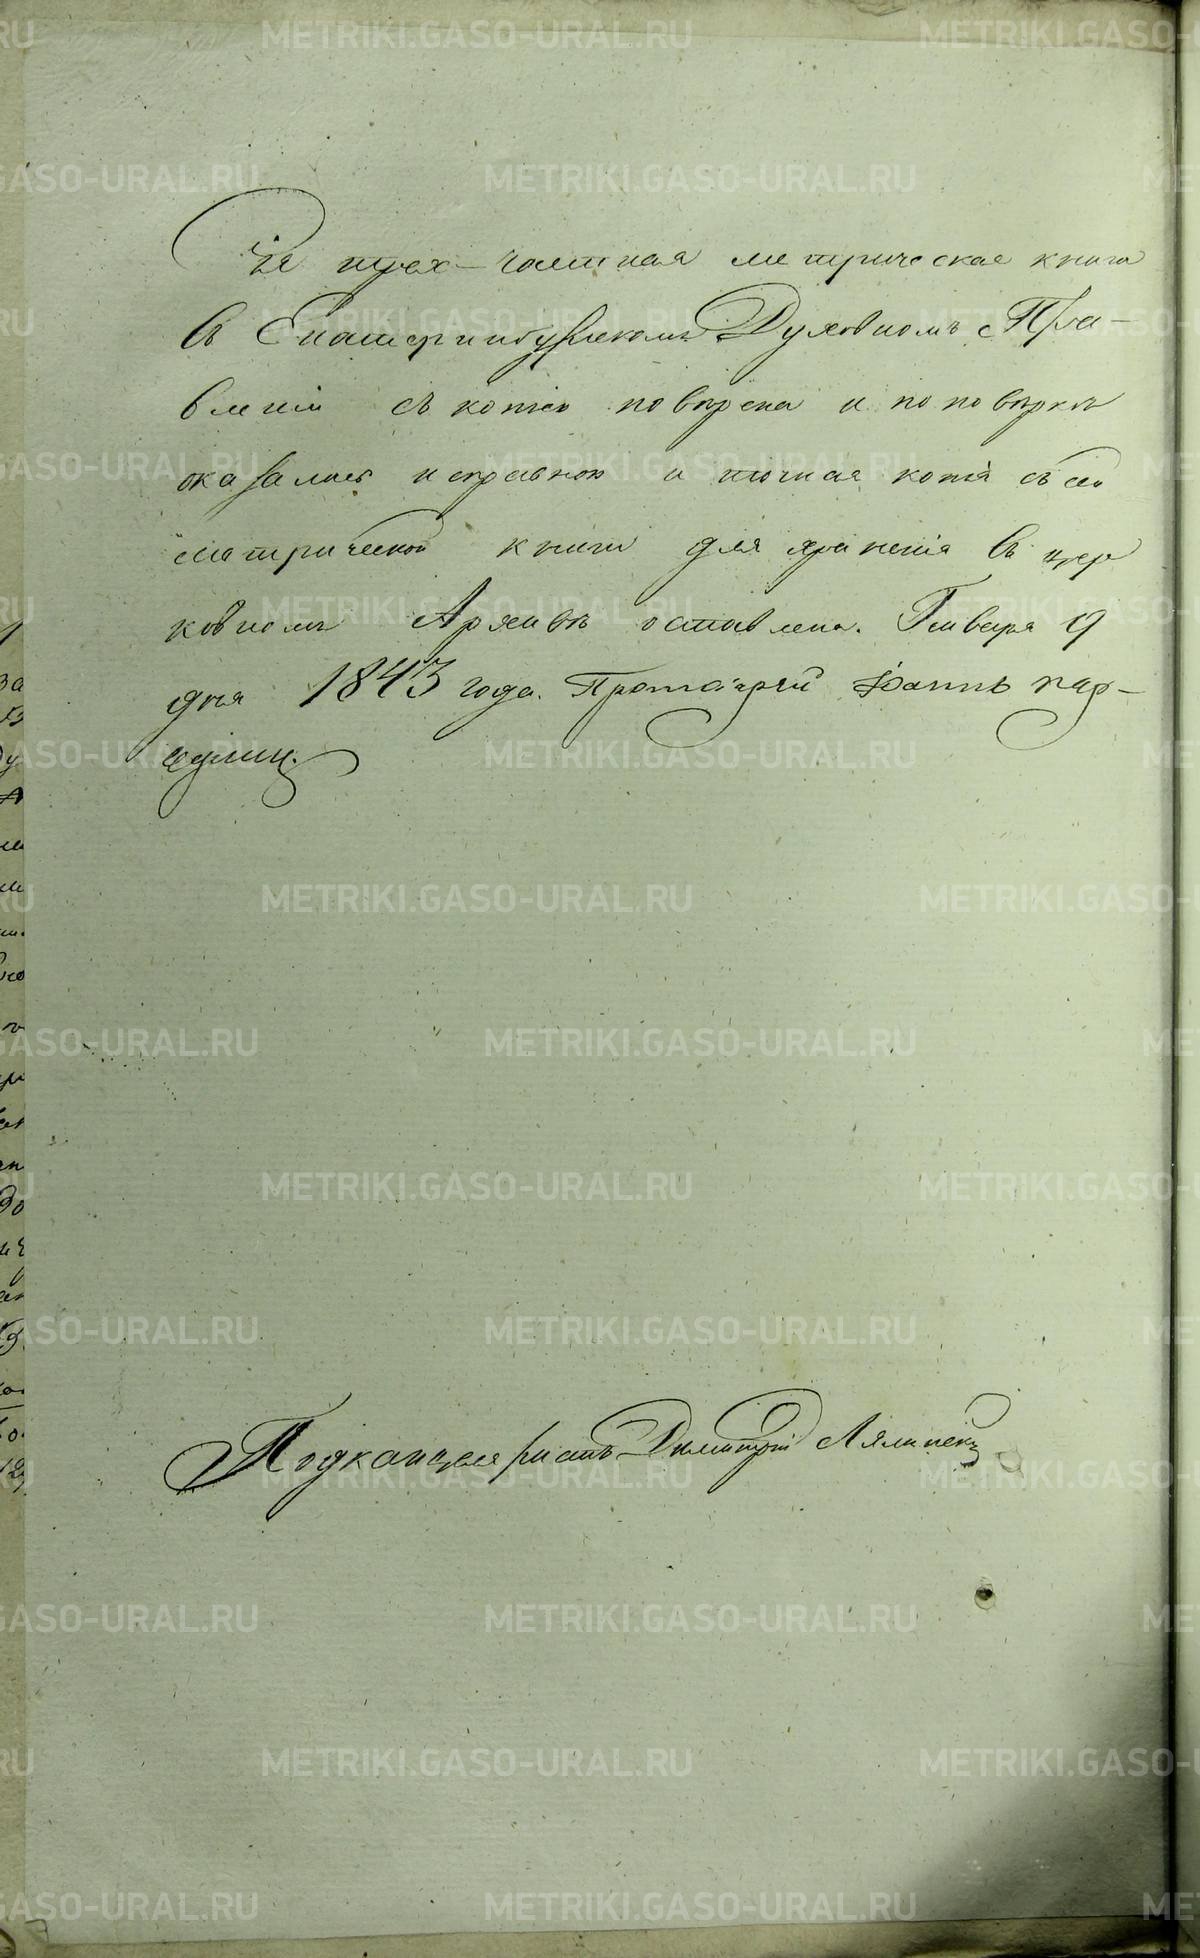 Сія трех-частная метрическая книга
въ Екатеринбургскомъ Духовномъ Пра-
вленіи съ копіею повѣрена и по повѣркѣ
оказалась исправною и точная копія съ сей
метрической книги для храненія въ цер
ковномъ Архивѣ оставлена. Генваря 9
дня 1843 года. Протоіерей Іоаннъ
Подканцеляристъ Димитрій
METRIKI.GASO-URAL.RU